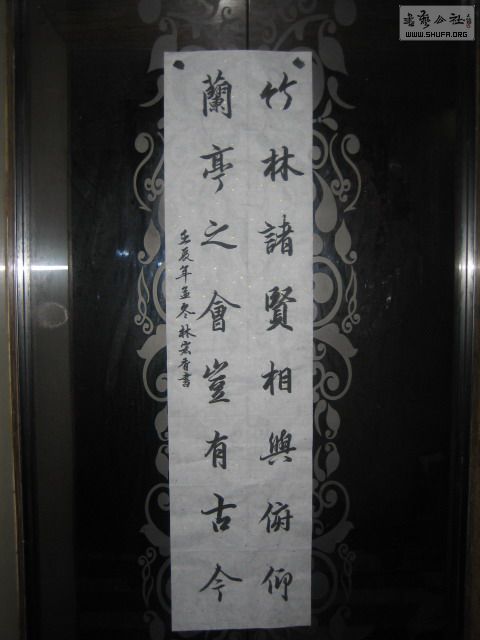 竹林諸賢相與俯仰
蘭亭之會豈有古今
壬辰年孟冬林宏香書
書藝公社
WWW.SHUFA.ORG